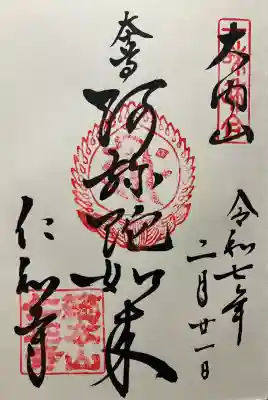 大内山
令和七年二月廿一日
本尊
阿弥陀如来
仁和寺